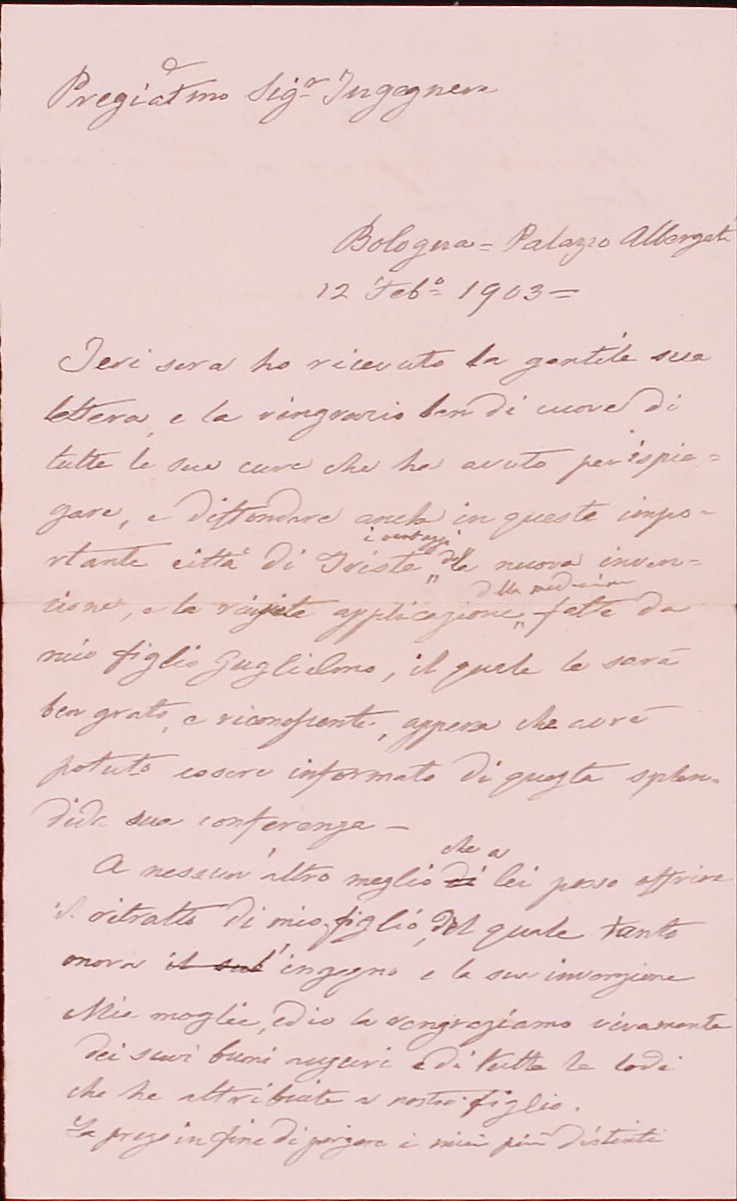 Pregiatmo Sigr Ingegnere
Bologna = Palazzo Albergati
12 Febo 1903 =
Ieri sera ho ricevuto la gentile sua
lettera, e la ringrazio ben di cuore di
tutte le sue cure che ha avuto per ispie=
gare, e diffondere anche in questa impo=
i vantaggi
rtante città di Trieste " della nuova inven=
della medesima
zione, e la applicazione " fatta da
mio figlio Guglielmo, il quale le sarà
ben grato, e riconoscente, appena che avrà
potuto essere informato di questa splen=
dida sua conferenza —
che a
A nessun'altro meglio di lei posso offrire
il ritratto di mio figlio, del quale tanto
onora il suo l'ingegno e la sua invenzione
Mia moglie, ed io la ringraziamo vivamente
dei suoi buoni auguri e di tutte le lodi
che ha attribuite a nostro figlio.
La prego in fine di porgere i miei più distinti